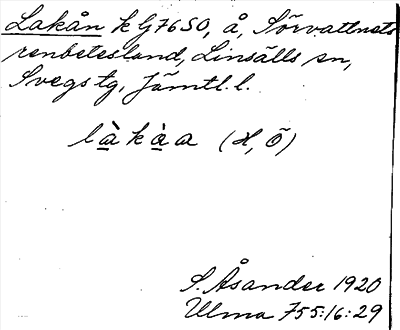 Lakån k G7650, å, Sörvattnets
renbetesland, Linsälls sn,
Svegs tg, Jämtl. l.
là̱kà̱a (H, Ö)
S. Åsander 1920
Ulma 755:16:29